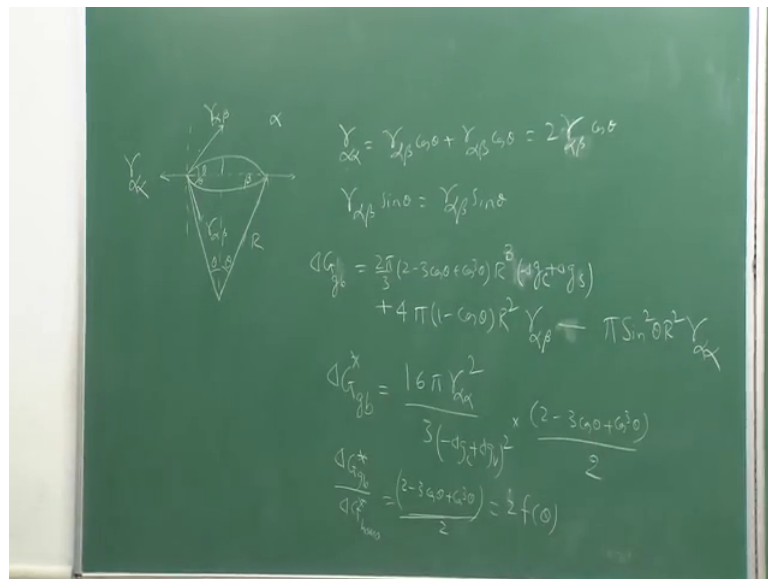 γαβ
α
γαα
θ
β
γαβ
R
θ θ
γαα = γαβ cosθ + γαβ cosθ = 2γαβ cosθ
γαβ sinθ = γαβ sinθ
ΔGgb = 2π/3 (2-3cosθ+cos³θ) R³ (-Δgc+Δgs)
+ 4π(1-cosθ)R² γαβ — π Sin²θR² γαα
ΔG*gb = 16πγαα² / 3(-Δgc+Δgs)² × (2-3cosθ+cos³θ) / 2
ΔG*gb / ΔG*homo = (2-3cosθ+cos³θ) / 2 = 2f(θ)